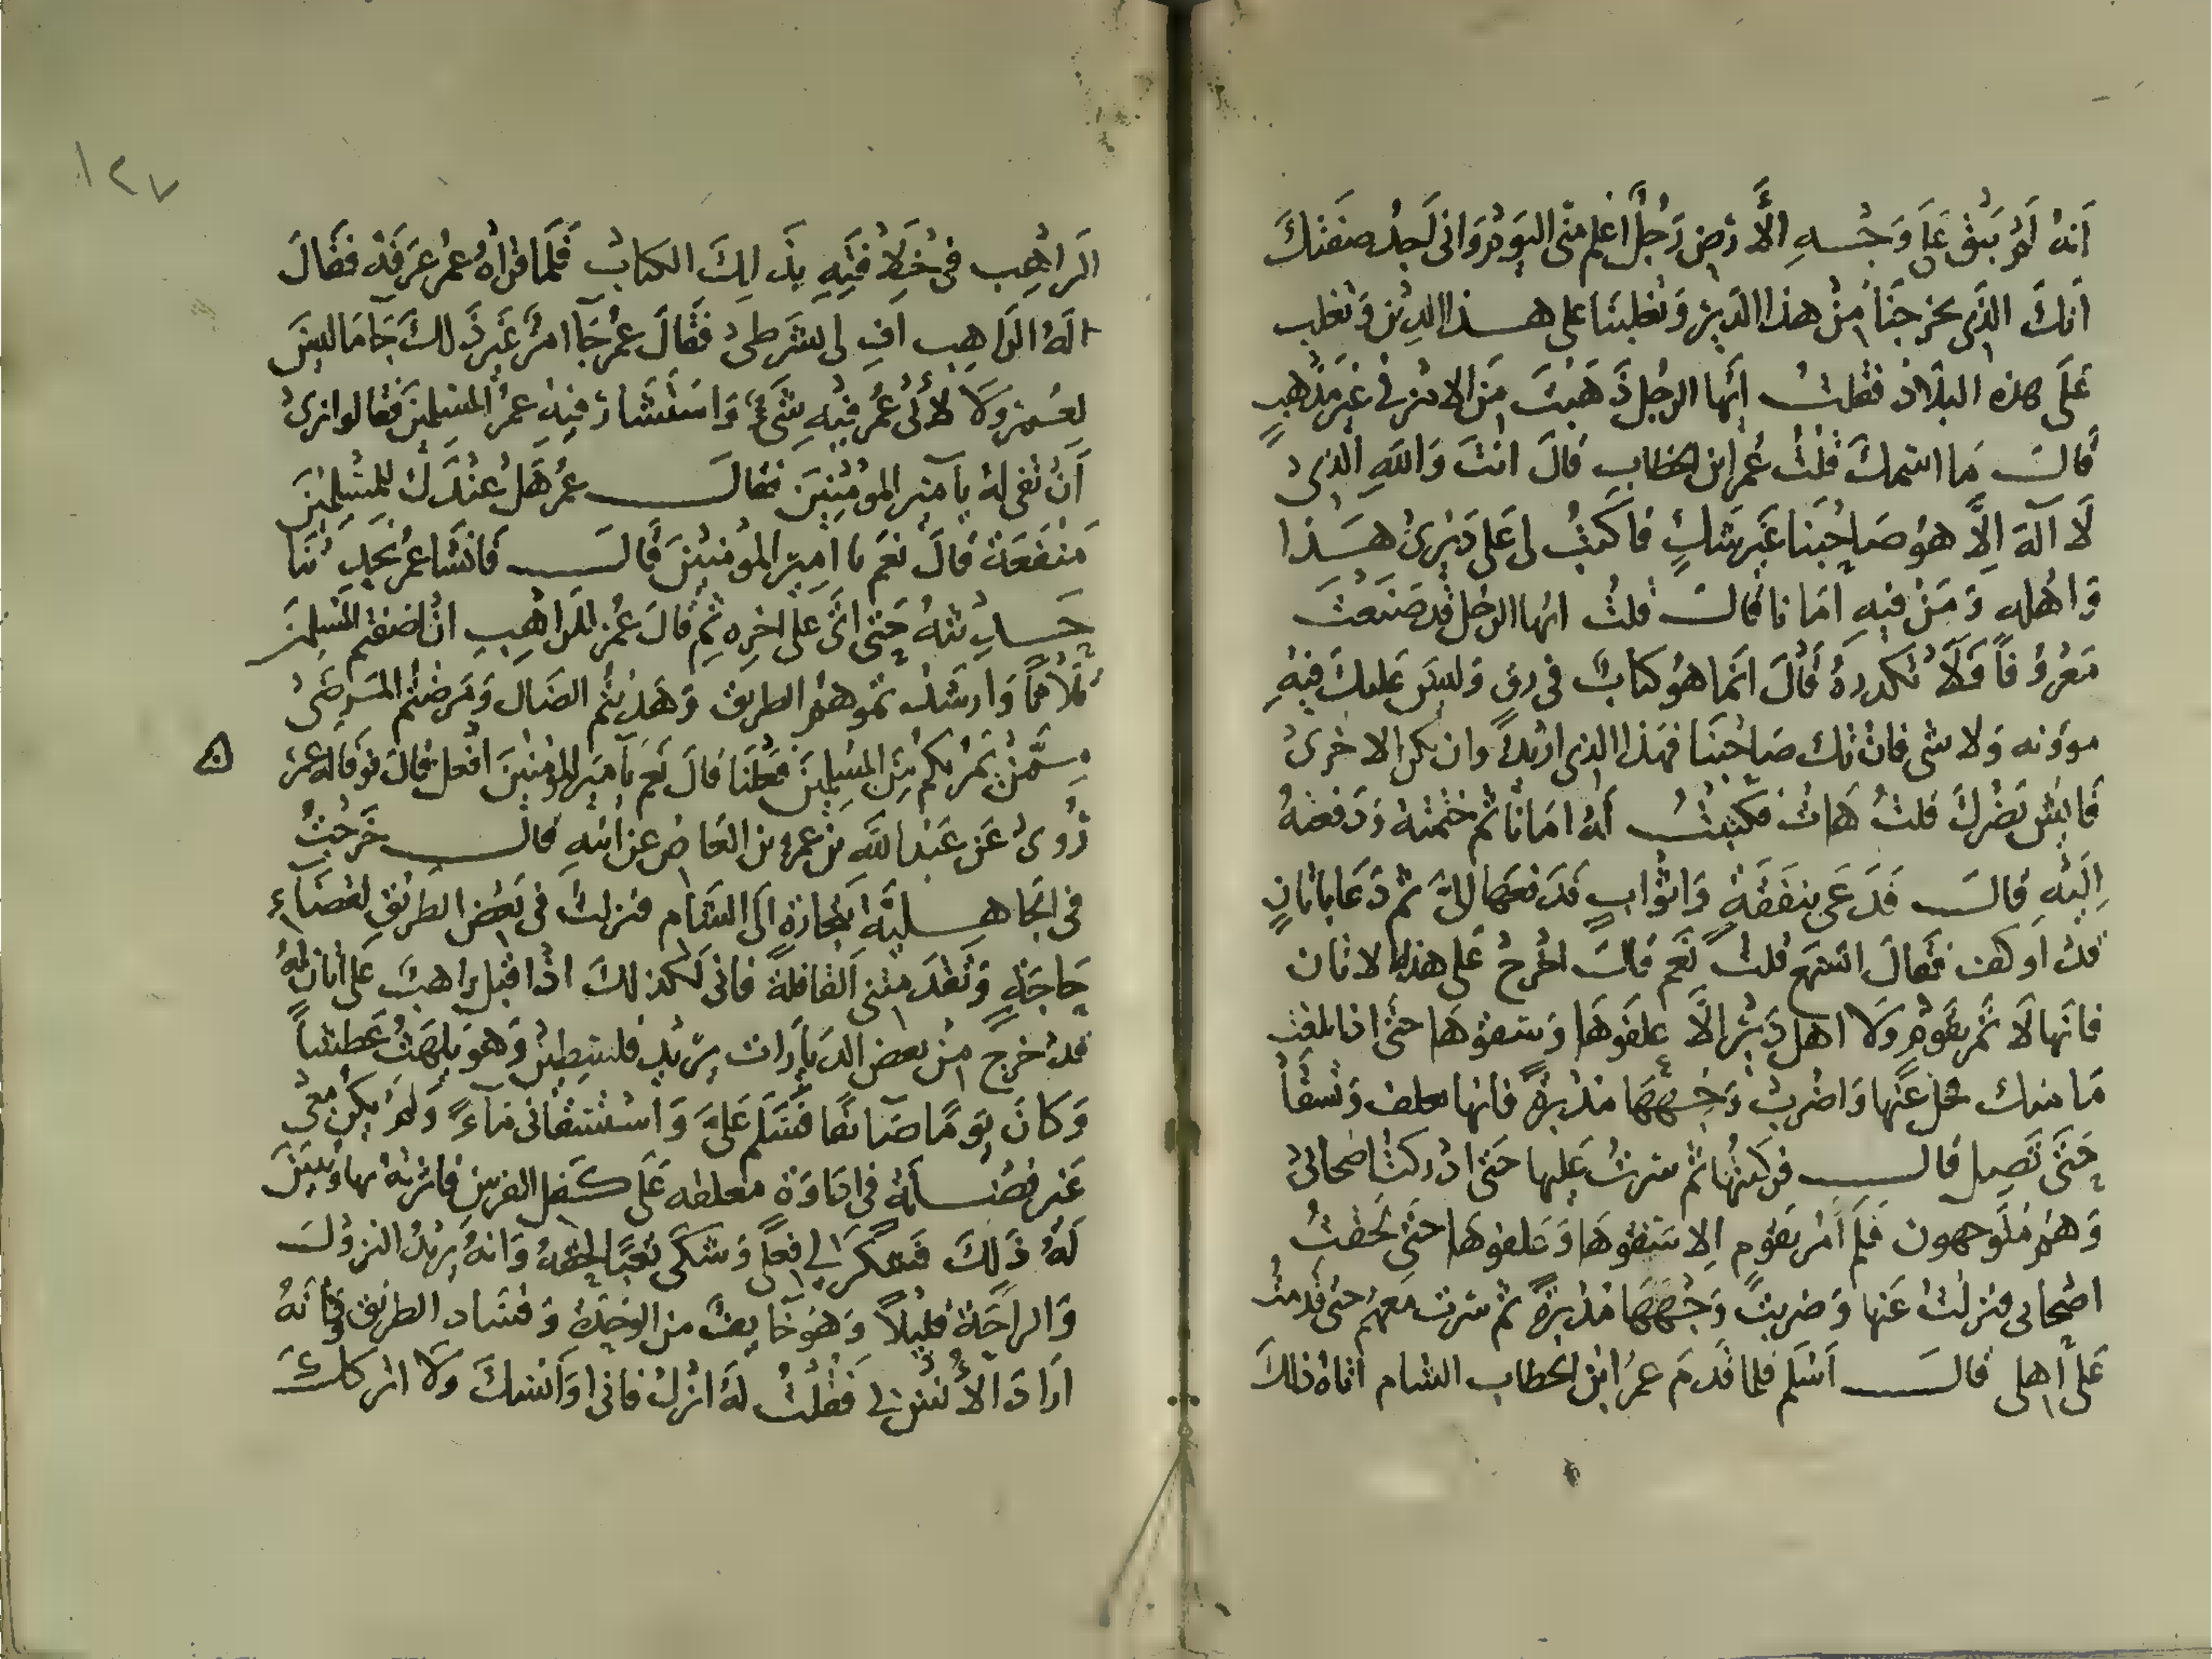 انه لم يبق على وجه الأرض رجل اعلم مني اليوم واني لاجد صفتك
انك الذي يخرجنا من هذا الدير وتغلبنا على هذا الدين وتغلب
على هذه البلاد فقلت ايها الرجل ذهبت من الامر في غير مذهب
قال ما اسمك قلت عمر ابن الخطاب قال انت والله الذي
لا اله الا هو صاحبنا غير شك فاكتب لي على ديري هذا
واهله ومن فيه امانا قال قلت ايها الرجل قد صنعت
معروفا فلا تكدره قال انما هو كتاب في رق وليس عليك فيه
موونه ولا شي فان تك صاحبنا فهذا الذي اردنا وان تكن الاخرى
فايش يضرك قلت هات فكتبت له امانا ثم ختمته ودفعته
اليه قال فدعى بنفقة واثواب فدفعها الي ثم دعا باتان
قد اوكفت فقال اتسمع قلت نعم قال اخرج على هذه الاتان
فانها لا تمر بقوم ولا اهل دير الا علفوها وسقوها حتى اذا بلغت
مامنك فحل عنها واضرب وجهها مدبرة فانها تعلف وتسقا
حتى تصل قال فركبتها ثم سرت عليها حتى ادركت اصحابي
وهم متوجهون فلم امر بقوم الا سقوها وعلفوها حتى لحقت
اصحابي فنزلت عنها وضربت وجهها مدبرة ثم سرت معهم حتى قدمت
على اهلي قال اسلم فلما قدم عمر ابن الخطاب الشام اتاه ذلك
١٢٧
الراهب في خلافته بذلك الكتاب فلما قراه عمر عرفه فقال
له الراهب اف لي بشرطي فقال عمر جا امر غير ذلك جا ما ليس
لعمر ولا لال عمر فيه شيء واستشار فيه عمر المسلمين فقالوا نرى
ان تفي له يا امير المومنين فقال عمر هل عندك للمسلمين
منفعة قال نعم يا امير المومنين قال فانشا عمر يحدثنا
حديثه حتى اتى على اخره ثم قال عمر للراهب ان اضفتم المسلمين
وارشدتموهم الطريق وهديتم الضال ومرضتم المرضى
ممن يمر بكم من المسلمين فعلنا قال نعم يا امير المومنين افعل قال فوفا له عمر ه
روى عن عبد الله بن عمرو بن العاص عن ابيه قال خرجت
في الجاهلية بتجارة الى الشام فنزلت في بعض الطريق لقضاء
حاجة وتقدمتني القافلة فاني لكذلك اذ اقبل راهب على اتان له
قد خرج من بعض الديارات يريد فلسطين وهو يلهث عطشا
وكان يوما صائفا فسلم علي واستسقاني ماء ولم يكن معي
غير فضلة في اداوة معلقه على كفل الفرس فاثرته بها وتبين
له ذلك فشكر لي فعلي وشكى تعبا لحقه وانه يريد النزول
والراحة قليلا وهو خايف من الوحدة وفساد الطريق وكانه
اراد الانس بي فقلت له انزل فاني اوانسك ولا اتركك